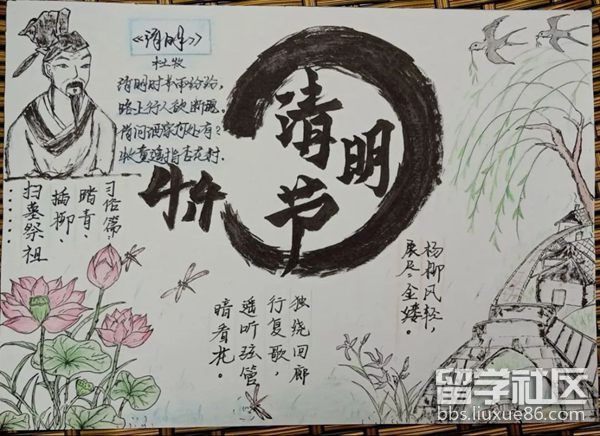 《清明》
杜牧
清明时节雨纷纷,
路上行人欲断魂,
借问酒家何处有?
牧童遥指杏花村.
清明节
习俗篇:
踏青、
插柳、
扫墓祭祖
......
杨柳风轻,
展尽金缕。
独绕回廊
行复歇,
遥听弦管
暗看花。
留学社区
bbs.liuxue86.com